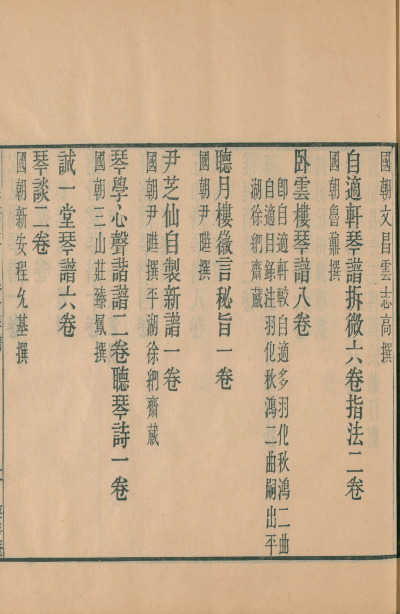 國朝文昌雲志高撰
自適軒琴譜拆微六卷指法二卷
國朝魯鼐撰
卧雲樓琴譜八卷
卽自適軒較自適多羽化秋鴻二曲
自適目錄注羽化秋鴻二曲嗣出平
湖徐網齋藏
聽月樓徽言秘旨一卷
國朝尹曄撰
尹芝仙自製新譜一卷
國朝尹曄撰平湖徐網齋藏
琴學心聲諧譜二卷聽琴詩一卷
國朝三山莊臻鳳撰
誠一堂琴譜六卷
琴談二卷
國朝新安程允基撰